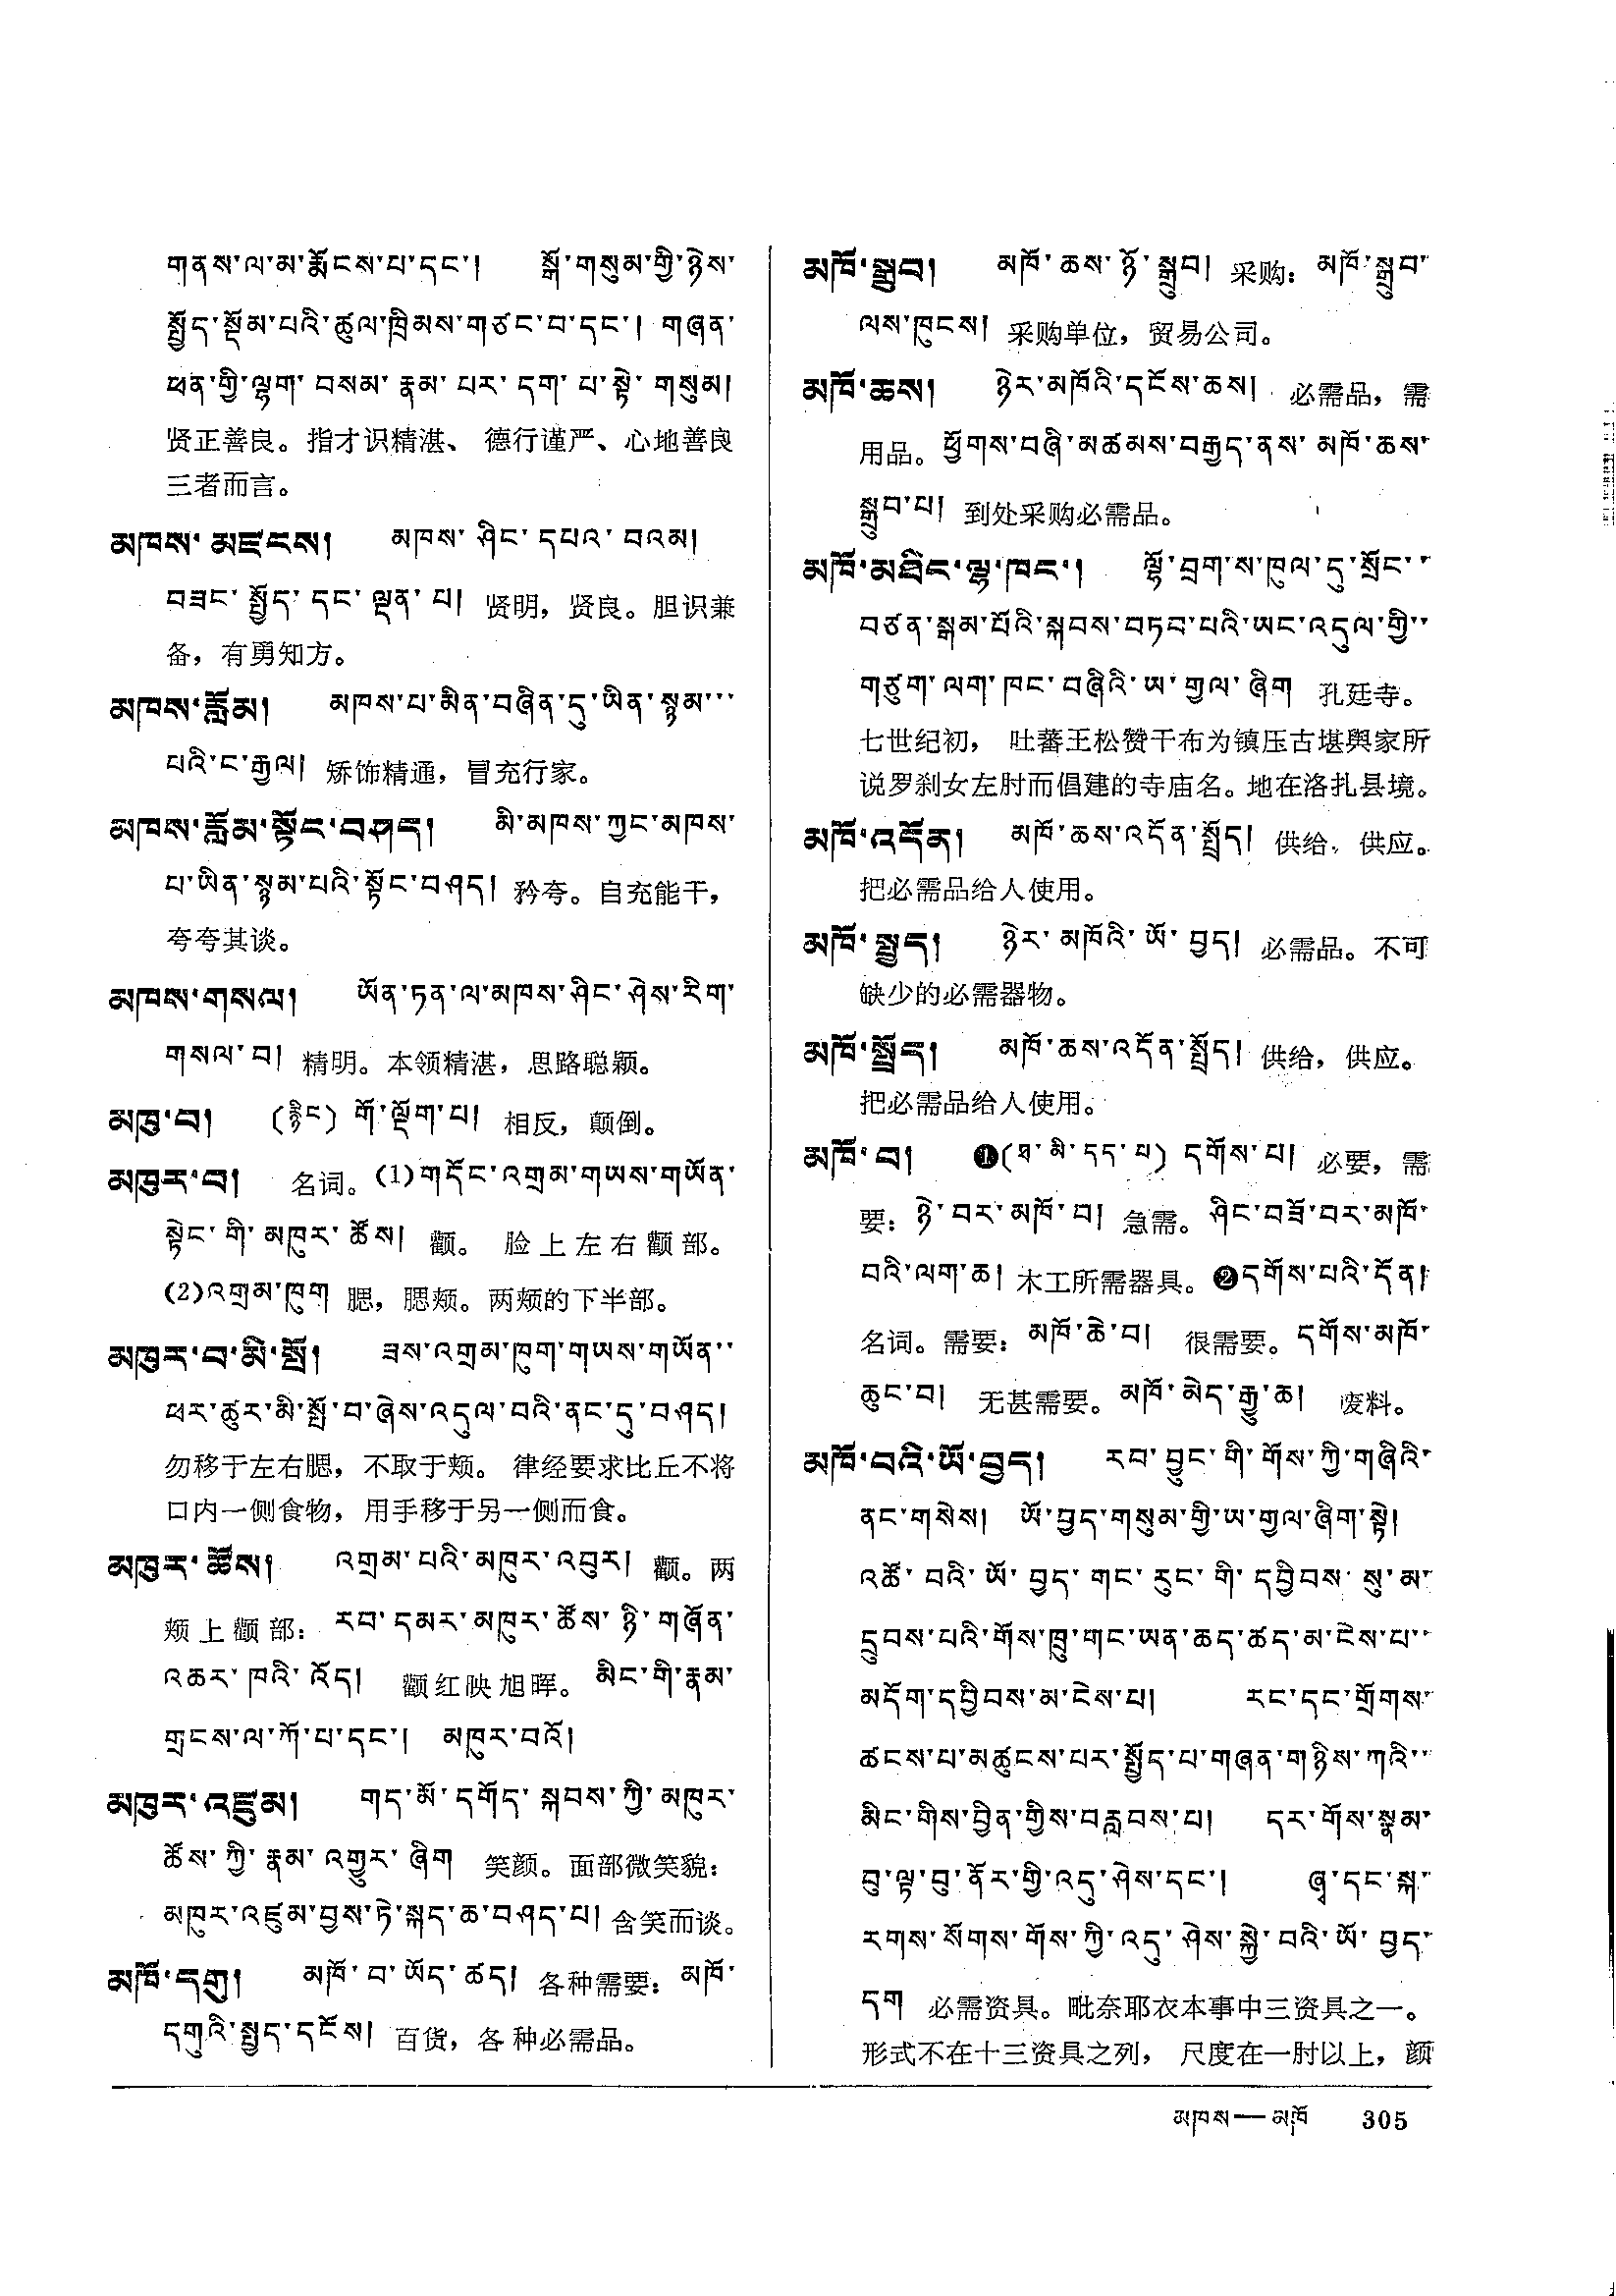 གནས་ལ་མ་རྨོངས་པ་དང་། སྒོ་གསུམ་གྱི་ཉེས་
སྤྱོད་སྡོམ་པའི་ཚུལ་ཁྲིམས་གཙང་བ་དང་། གཞན་
ཕན་གྱི་ལྷག་བསམ་རྣམ་པར་དག་པ་སྟེ་གསུམ།
贤正善良。指才识精湛、德行谨严、心地善良
三者而言。
མཁས་མཛངས། མཁས་ཤིང་དཔའ་བའམ།
བཟང་སྤྱོད་དང་ལྡན་པ། 贤明，贤良。胆识兼
备，有勇知方。
མཁས་རློམ། མཁས་པ་མིན་བཞིན་དུ་ཡིན་སྙམ་
པའི་ང་རྒྱལ། 矫饰精通，冒充行家。
མཁས་རློམ་སྟོང་བཤད། མི་མཁས་ཀྱང་མཁས་
པ་ཡིན་སྙམ་པའི་སྟོང་བཤད། 矜夸。自充能干，
夸夸其谈。
མཁས་གསལ། ཡོན་ཏན་ལ་མཁས་ཤིང་ཤེས་རིག་
གསལ་བ། 精明。本领精湛，思路聪颖。
མཁུ་བ། (རྙིང) གོ་ལྡོག་པ། 相反，颠倒。
མཁུར་བ། 名词。(1)གདོང་འགྲམ་གཡས་གཡོན་
སྟེང་གི་མཁུར་ཚོས། 颧。脸上左右颧部。
(2)འགྲམ་ཁུག 腮，腮颊。两颊的下半部。
མཁུར་བ་མི་སྤོ། ཟས་འགྲམ་ཁུག་གཡས་གཡོན་
ཕར་ཚུར་མི་སྤོ་བ་ཞེས་འདུལ་བའི་ནང་དུ་བཤད།
勿移于左右腮，不取于颊。律经要求比丘不将
口内一侧食物，用手移于另一侧而食。
མཁུར་ཚོས། འགྲམ་པའི་མཁུར་འབུར། 颧。两
颊上颧部：རབ་དམར་མཁུར་ཚོས་ཉི་གཞོན་
འཆར་ཁའི་འོད། 颧红映旭晖。མིང་གི་རྣམ་
གྲངས་ལ་ཀོ་པ་དང་། མཁུར་བའོ།
མཁུར་འཛུམ། གད་མོ་དགོད་སྐབས་ཀྱི་མཁུར་
ཚོས་ཀྱི་རྣམ་འགྱུར་ཞིག 笑颜。面部微笑貌：
མཁུར་འཛུམ་བྱས་ཏེ་སྐད་ཆ་བཤད་པ། 含笑而谈。
མཁོ་དགུ། མཁོ་བ་ཡོད་ཚད། 各种需要：མཁོ་
དགུའི་སྤྱད་དངོས། 百货，各种必需品。
མཁོ་སྒྲུབ། མཁོ་ཆས་ཉོ་སྒྲུབ། 采购：མཁོ་སྒྲུབ་
ལས་ཁུངས། 采购单位，贸易公司。
མཁོ་ཆས། ཉེར་མཁོའི་དངོས་ཆས། 必需品，需
用品。ཕྱོགས་བཞི་མཚམས་བརྒྱད་ནས་མཁོ་ཆས་
སྒྲུབ་པ། 到处采购必需品。
མཁོ་མཐིང་ལྷ་ཁང་། ལྷོ་བྲག་ས་ཁུལ་དུ་སྲོང་
བཙན་སྒམ་པོའི་སྐབས་བཏབ་པའི་ཡང་འདུལ་གྱི་
གཙུག་ལག་ཁང་བཞིའི་ཡ་གྱལ་ཞིག 孔廷寺。
七世纪初，吐蕃王松赞干布为镇压古堪舆家所
说罗刹女左肘而倡建的寺庙名。地在洛扎县境。
མཁོ་འདོན། མཁོ་ཆས་འདོན་སྤྲོད། 供给，供应。
把必需品给人使用。
མཁོ་སྤྱད། ཉེར་མཁོའི་ཡོ་བྱད། 必需品。不可
缺少的必需器物。
མཁོ་སྤྲོད། མཁོ་ཆས་འདོན་སྤྲོད། 供给，供应。
把必需品给人使用。
མཁོ་བ། ❶(ཐ་མི་དད་པ) དགོས་པ། 必要，需
要：ཉེ་བར་མཁོ་བ། 急需。ཤིང་བཟོ་བར་མཁོ་
བའི་ལག་ཆ། 木工所需器具。❷དགོས་པའི་དོན།
名词。需要：མཁོ་ཆེ་བ། 很需要。དགོས་མཁོ་
ཆུང་བ། 无甚需要。མཁོ་མེད་རྒྱུ་ཆ། 废料。
མཁོ་བའི་ཡོ་བྱད། རབ་བྱུང་གི་གོས་ཀྱི་གཞིའི་
ནང་གསེས། ཡོ་བྱད་གསུམ་གྱི་ཡ་གྱལ་ཞིག་སྟེ།
འཚོ་བའི་ཡོ་བྱད་གང་རུང་གི་དབྱིབས་སུ་མ་
དྲུབས་པའི་གོས་ཁྲུ་གང་ཡན་ཆད་ཚད་མ་ངེས་པ་
མདོག་དབྱིབས་མ་ངེས་པ། རང་དང་གྲོགས་
ཚངས་པ་མཚུངས་པར་སྤྱོད་པ་གཞན་གཉིས་ཀའི་
མིང་གིས་བྱིན་གྱིས་བརླབས་པ། དར་གོས་སྣམ་
བུ་ལྟ་བུ་ནོར་གྱི་འདུ་ཤེས་དང་། ཞྭ་དང་སྐ་
རགས་སོགས་གོས་ཀྱི་འདུ་ཤེས་སྐྱེ་བའི་ཡོ་བྱད་
དག 必需资具。毗奈耶衣本事中三资具之一。
形式不在十三资具之列，尺度在一肘以上，颜
མཁས—མཁོ 305